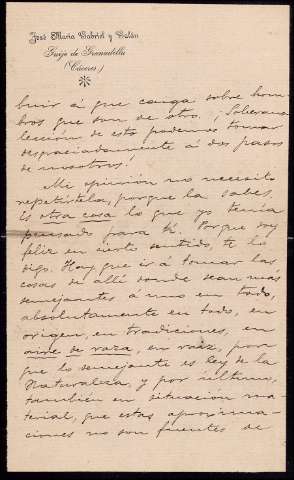 José María Gabriel y Galán
Guijo de Granadilla
(Cáceres)
buir á que caiga sobre hom-
bros que son de otro. ¡Soberana
lección de esto podemos tomar
desgraciadamente á dos pasos
de nosotros!
Mi opinión no necesito
repetírtela, porque la sabes.
Es otra cosa lo que yo tenía
pensado para tí. Porque soy
feliz en cierto sentido, te lo
digo. Hay que ir á tomar las
cosas de allí donde sean más
semejantes á uno en todo,
absolutamente en todo, en
origen, en tradiciones, en
aire de raza, en raíz, por-
que lo semejante es ley de la
Naturaleza, y por último,
también en situación ma-
terial, que estas aproxima-
ciones no son fuentes de